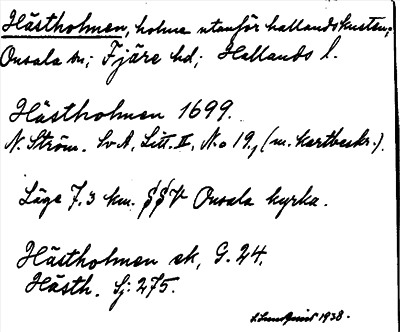 Hästholmen, holme utanför hallandskusten;
Onsala sn; Fjäre hd; Hallands l.
Hästholmen 1699.
N. Ström. Sv A, Litt. II, No 19, (m. kartbeskr.).
Läge 7.3 km. SSV Onsala kyrka.
Hästholmen ek, G. 24.
Hästh. Sj: 275.
S. Lundquist 1938.